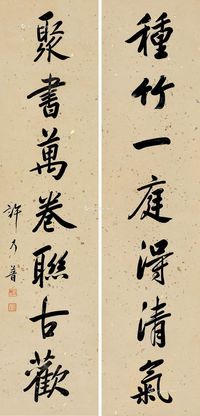 種竹一庭得清氣
聚書萬卷聯古歡
許乃普